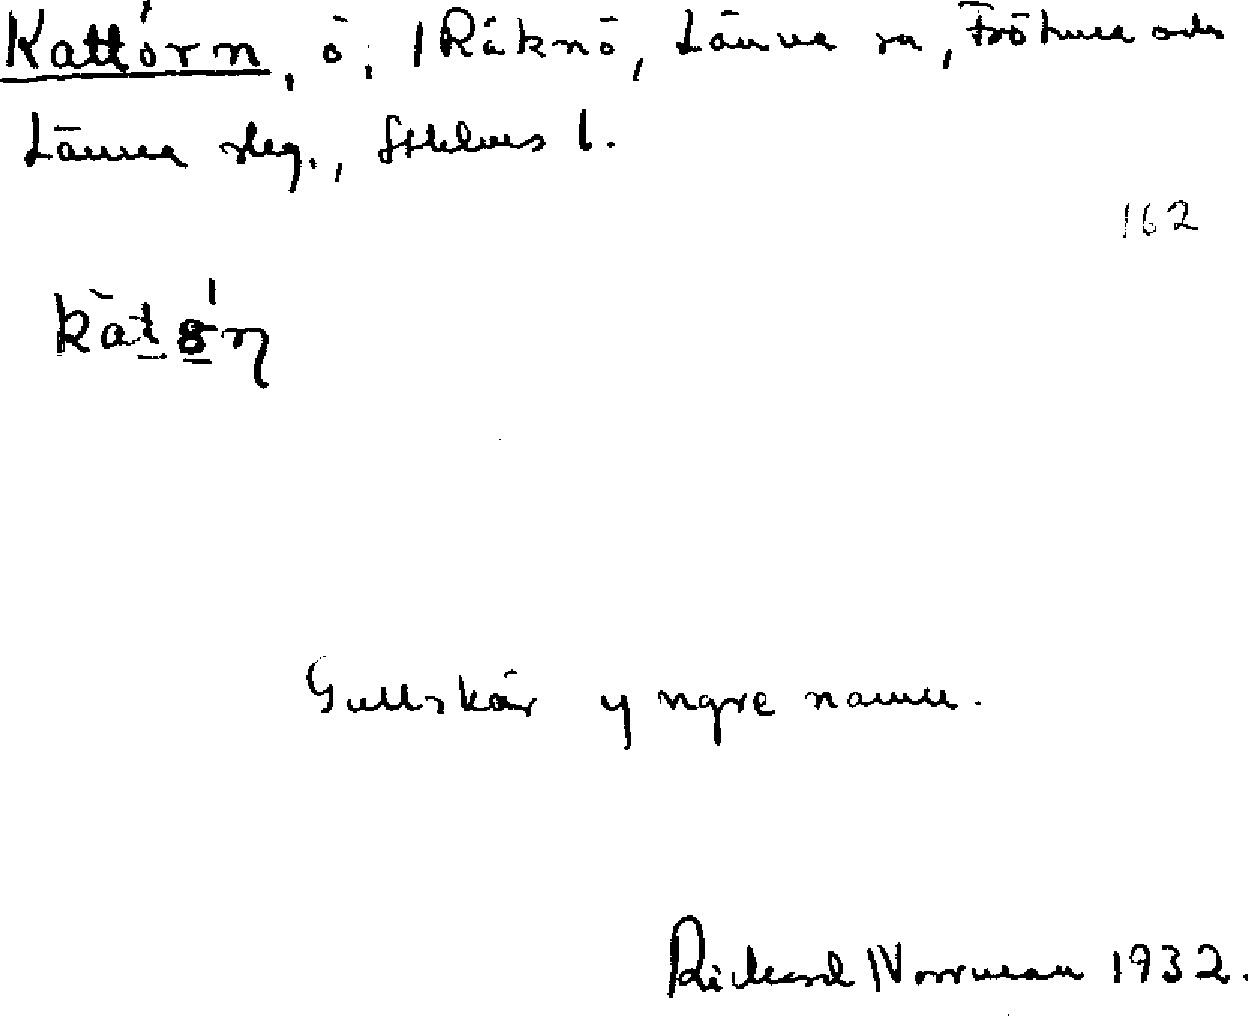 Kattörn, ö, Råknö, Länna sn, Frötuna och
Länna skg., Sthlms l.
162
Gullskär yngre namn.
Rickard Norrman 1932.